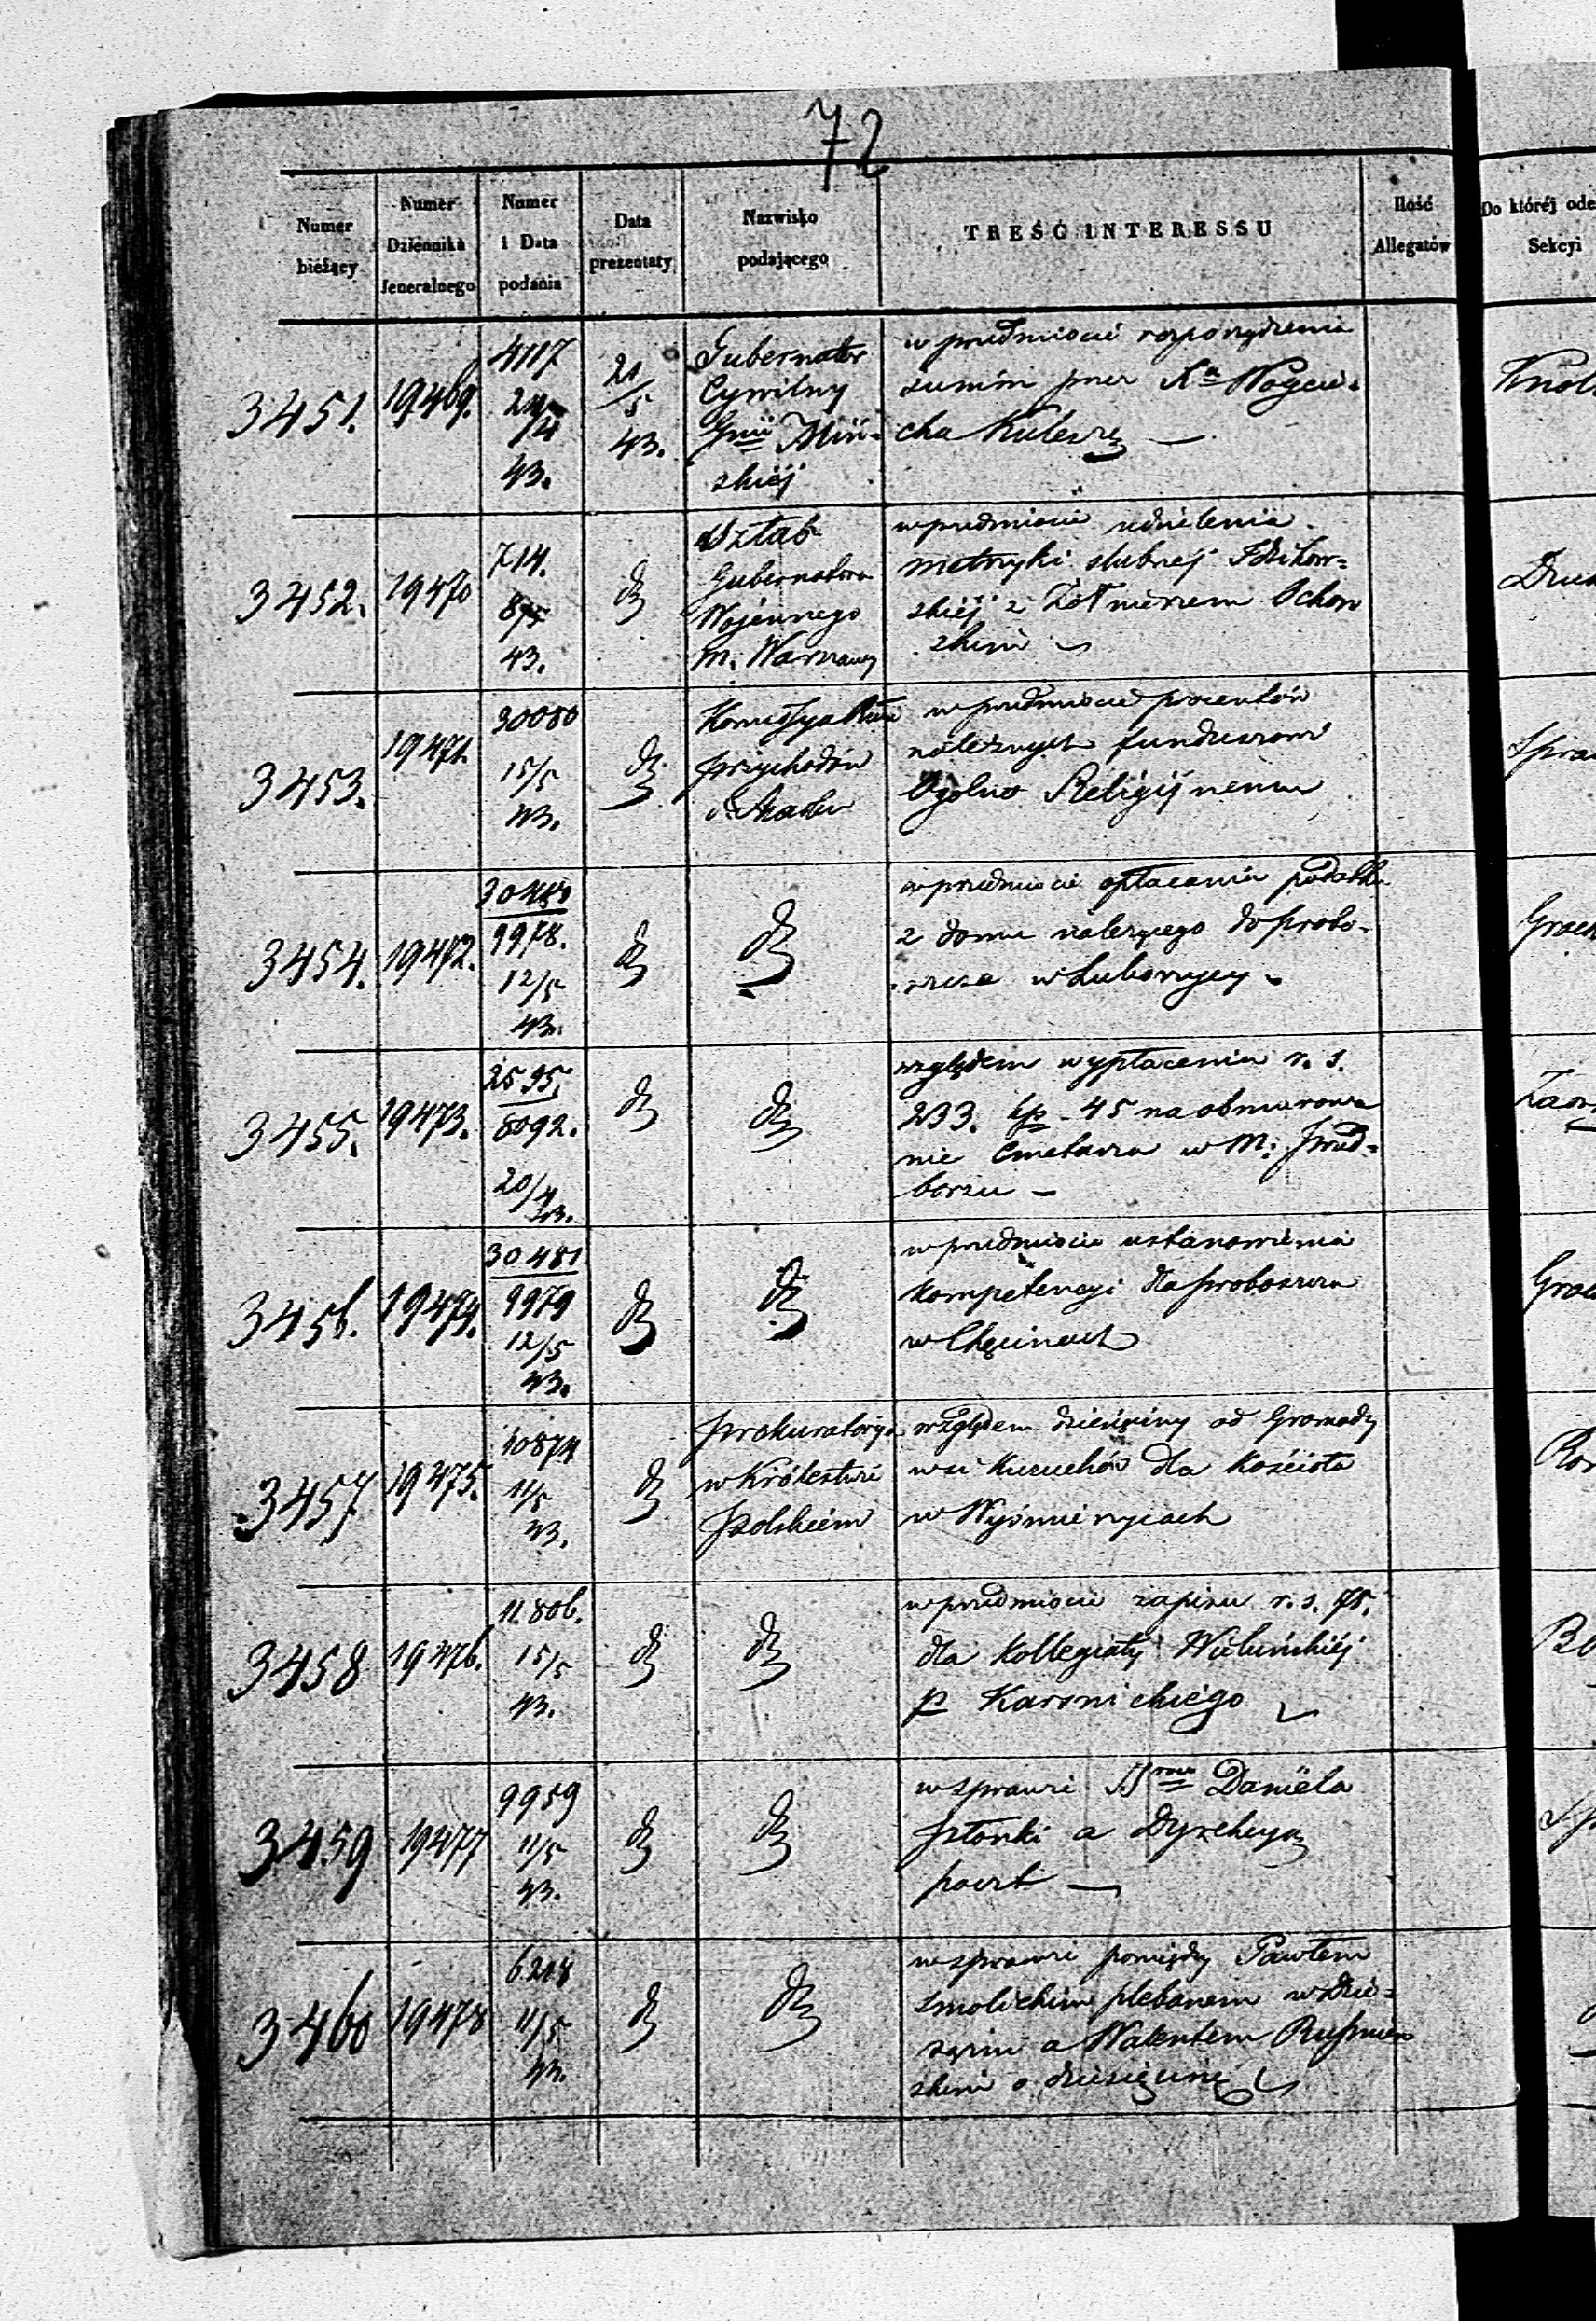 72
Numer bieżący
Numer Dziennika Jeneralnego
Numer i Data podania
Data prezentaty
Nazwisko podającego
TREŚĆ INTERESSU
Ilość Allegatów
Do któréj ode
Sekcyi
3451.
19469.
4117
43.
21/5
43.
Gubernator
Cywilny
Gnii Miń=
skiéj
w przedmiocie rozporządzenia
summ przez Xa Woycie=
cha Kuleszę —
3452.
19470
714.
43.
dto
Sztab
Gubernatora
Wojennego
m. Warszawy
w przedmiocie udzielenia
metryki ślubnej
skiéj z Żołnierzem Ochow
skim
3453.
19471.
30080
15/5
43.
dto
Komissya
Przychodów
i Skarbu
w przedmiocie procentów
należnych funduszowi
Ogólno Religijnemu
Spra
3454.
19472.
9978.
12/5
43.
dto
dto
w przedmiocie opłacania podatku
z domu należącego do probo=
szcza w Luborzycy
3455.
19473.
2595.
8092.
20/4
43.
dto
dto
względem wypłacenia r. s.
233. kp. 45 na obmurowa
nie Cmentarza w M: Przed=
borzu —
3456.
19474.
30481
9979
12/5
43.
dto
dto
w przedmiocie ustanowienia
kompetencyi dla proboszcza
w Chęcinach
3457
19475.
10874
11/5
43.
dto
Prokuratorya
w Królestwie
Polskiém
względem dziesięciny od Gromady
wsi dla Kościoła
w Wyśmierzycach
3458
19476.
11806.
15/5
43.
dto
dto
w przedmiocie zapisu r. s. 75.
dla Kollegiaty Wieluńskiéj
p Karśnickiego
3459
19477
9959
11/5
43.
dto
dto
w sprawie Daniela
Płonki a Dyrekcyą
poczt —
3460
19478
11/5
43.
dto
dto
w sprawie pomiędzy Pawłem
Smolichim plebanem
a Walentem
skim o dziesięcinę